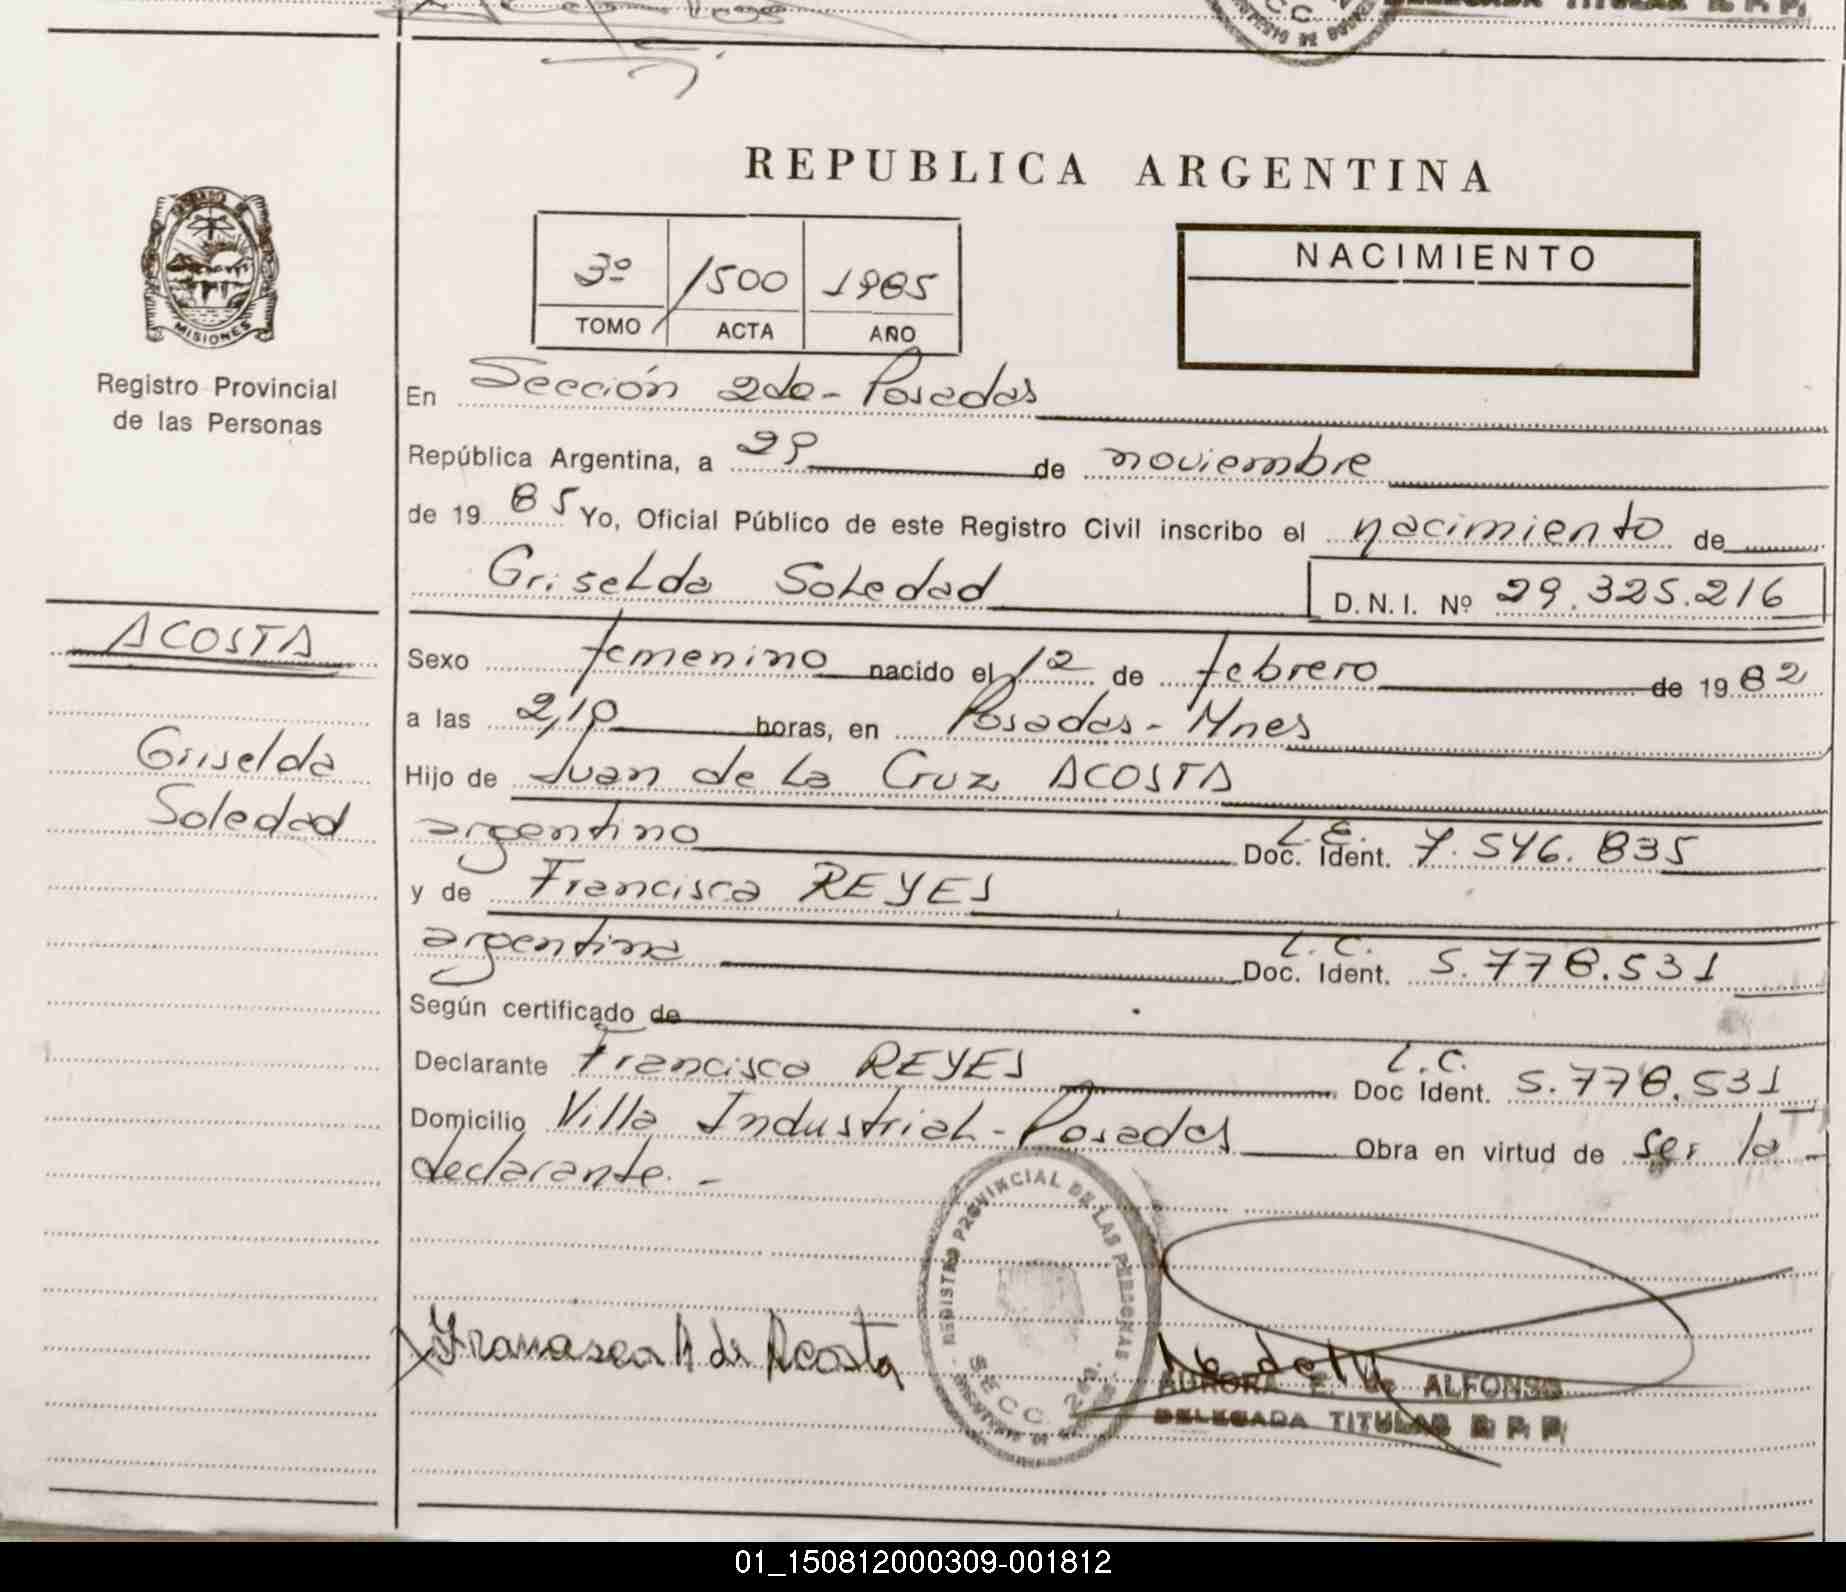 REPUBLICA ARGENTINA
3º /500 1985
TOMO ACTA AÑO
NACIMIENTO
MISIONES
Registro Provincial
de las Personas
En Sección 2da - Posadas
República Argentina, a 29 de noviembre
de 19 85 Yo, Oficial Público de este Registro Civil inscribo el nacimiento de
Griselda Soledad D.N.I. Nº 29.325.216
ACOSTA
Griselda
Soledad
Sexo femenino nacido el 12 de febrero de 19 82
a las 2,10 horas, en Posadas - Mnes
Hijo de Juan de La Cruz ACOSTA
argentino L.E. Doc. Ident. 7.546.835
y de Francisca REYES
argentina L.C. Doc. Ident. 5.778.531
Según certificado de
Declarante Francisca REYES L.C. Doc Ident. 5.778.531
Domicilio Villa Industrial - Posadas Obra en virtud de ser la
declarante. -
REGISTRO PROVINCIAL DE LAS PERSONAS
SECC. 2da.
Francisca R de Acosta
AURORA E. de ALFONSO
DELEGADA TITULAR R. P. P.
01_150812000309-001812